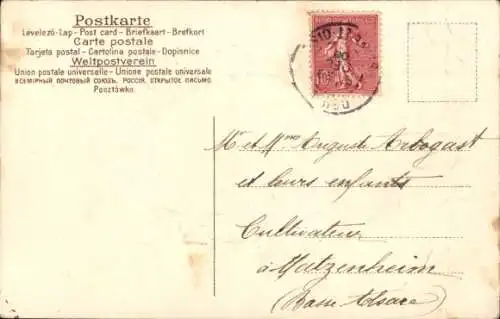 Postkarte
Levelező-Lap - Post card - Briefkaart - Brefkort
Carte postale
Tarjeta postal - Cartolina postale - Dopisnice
Weltpostverein
Union postale universelle - Unione postale universale
ВСЕМІРНЫЙ ПОЧТОВЫЙ СОЮЗЪ. РОССІЯ. ОТКРЫТОЕ ПИСЬМО.
Pocztówka
Mr et Mme Auguste Arbogast
et leurs enfants
Cultivateur
à Matzenheim
(Basse Alsace)